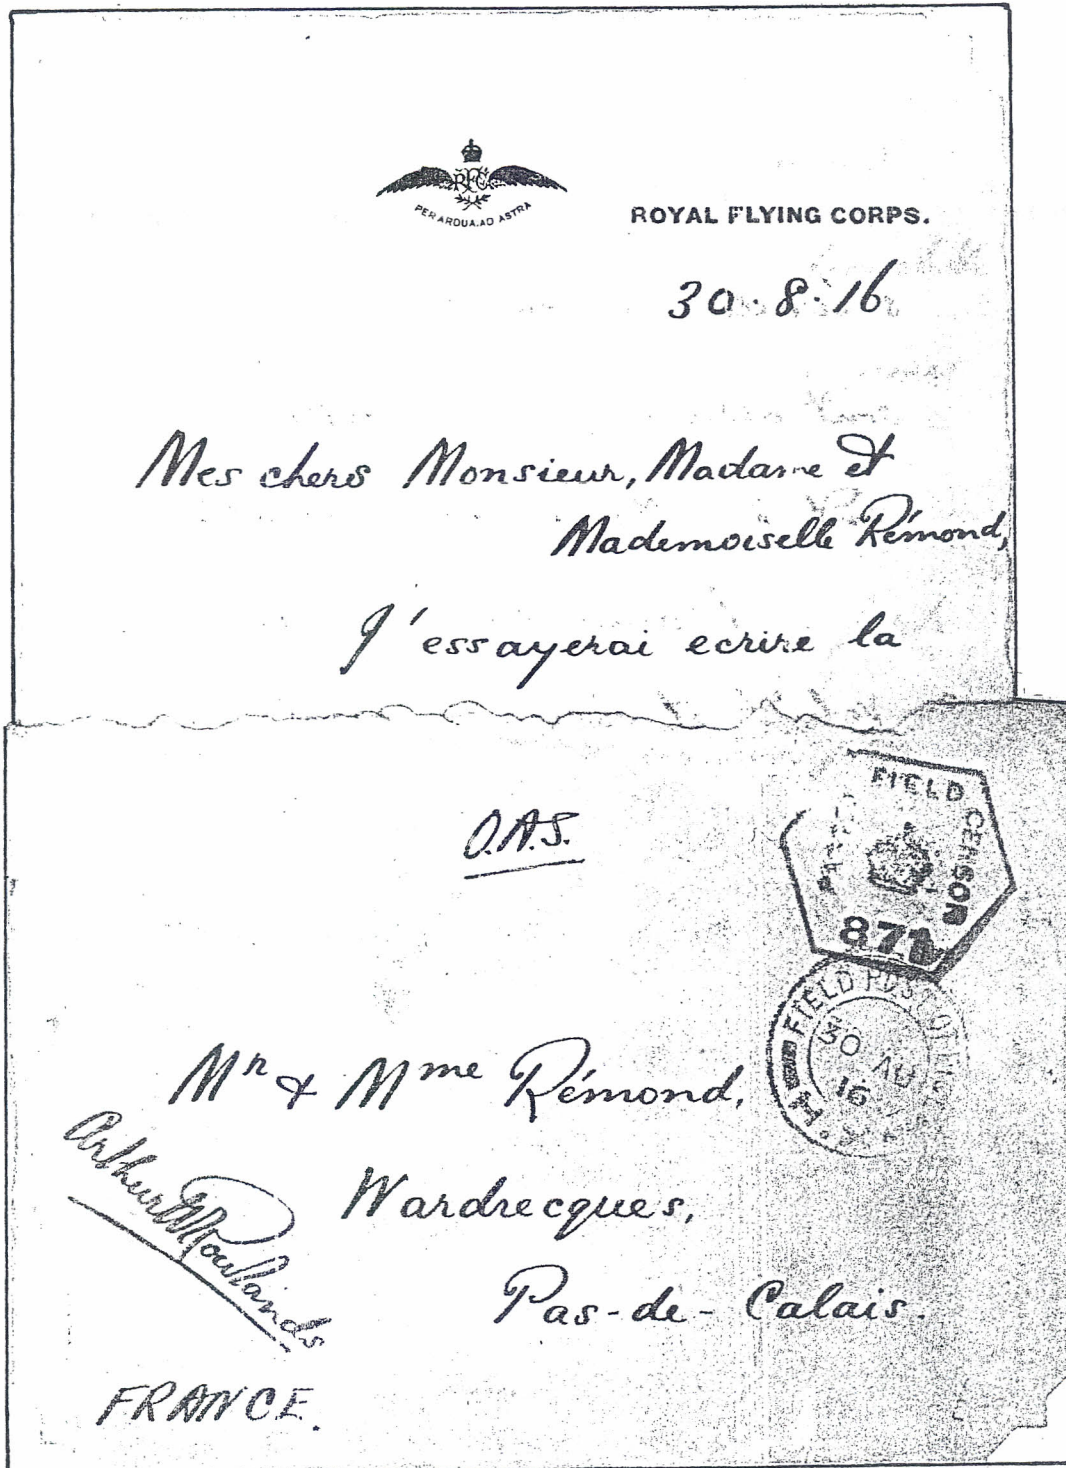 RFC
PER ARDUA AD ASTRA
ROYAL FLYING CORPS.
30.8.16
Mes chers Monsieur, Madame et
Mademoiselle Rémond,
J'essayerai ecrire la
O.A.S.
FIELD CENSOR
FIELD POST OFFICE
30 AU
16
Mr & Mme Rémond,
Wardrecques,
Pas-de-Calais.
Arthur Rowlands
FRANCE.